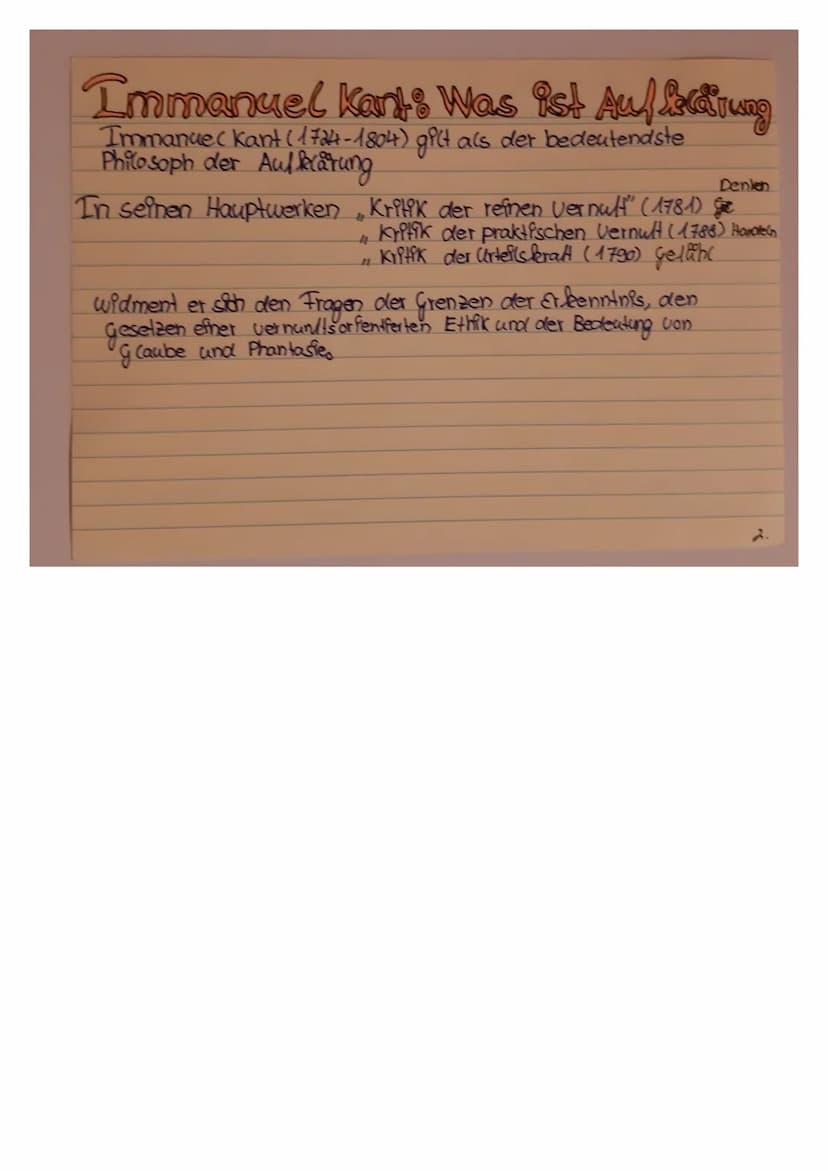 Immanuel Kant: Was ist Aufklärung
Immanuel Kant (1724-1804) gilt als der bedeutendste
Philosoph der Aufklärung
Denken
In seinen Hauptwerken „Kritik der reinen Vernuft" (1781)
„ Kritik der praktischen Vernuft (1788) Handeln
„ Kritik der Urteilskraft (1790) Gefühl
widment er sich den Fragen der Grenzen der Erkenntnis, den
Gesetzen einer vernunftsorientierten Ethik und der Bedeutung von
Glaube und Phantasie.
2.